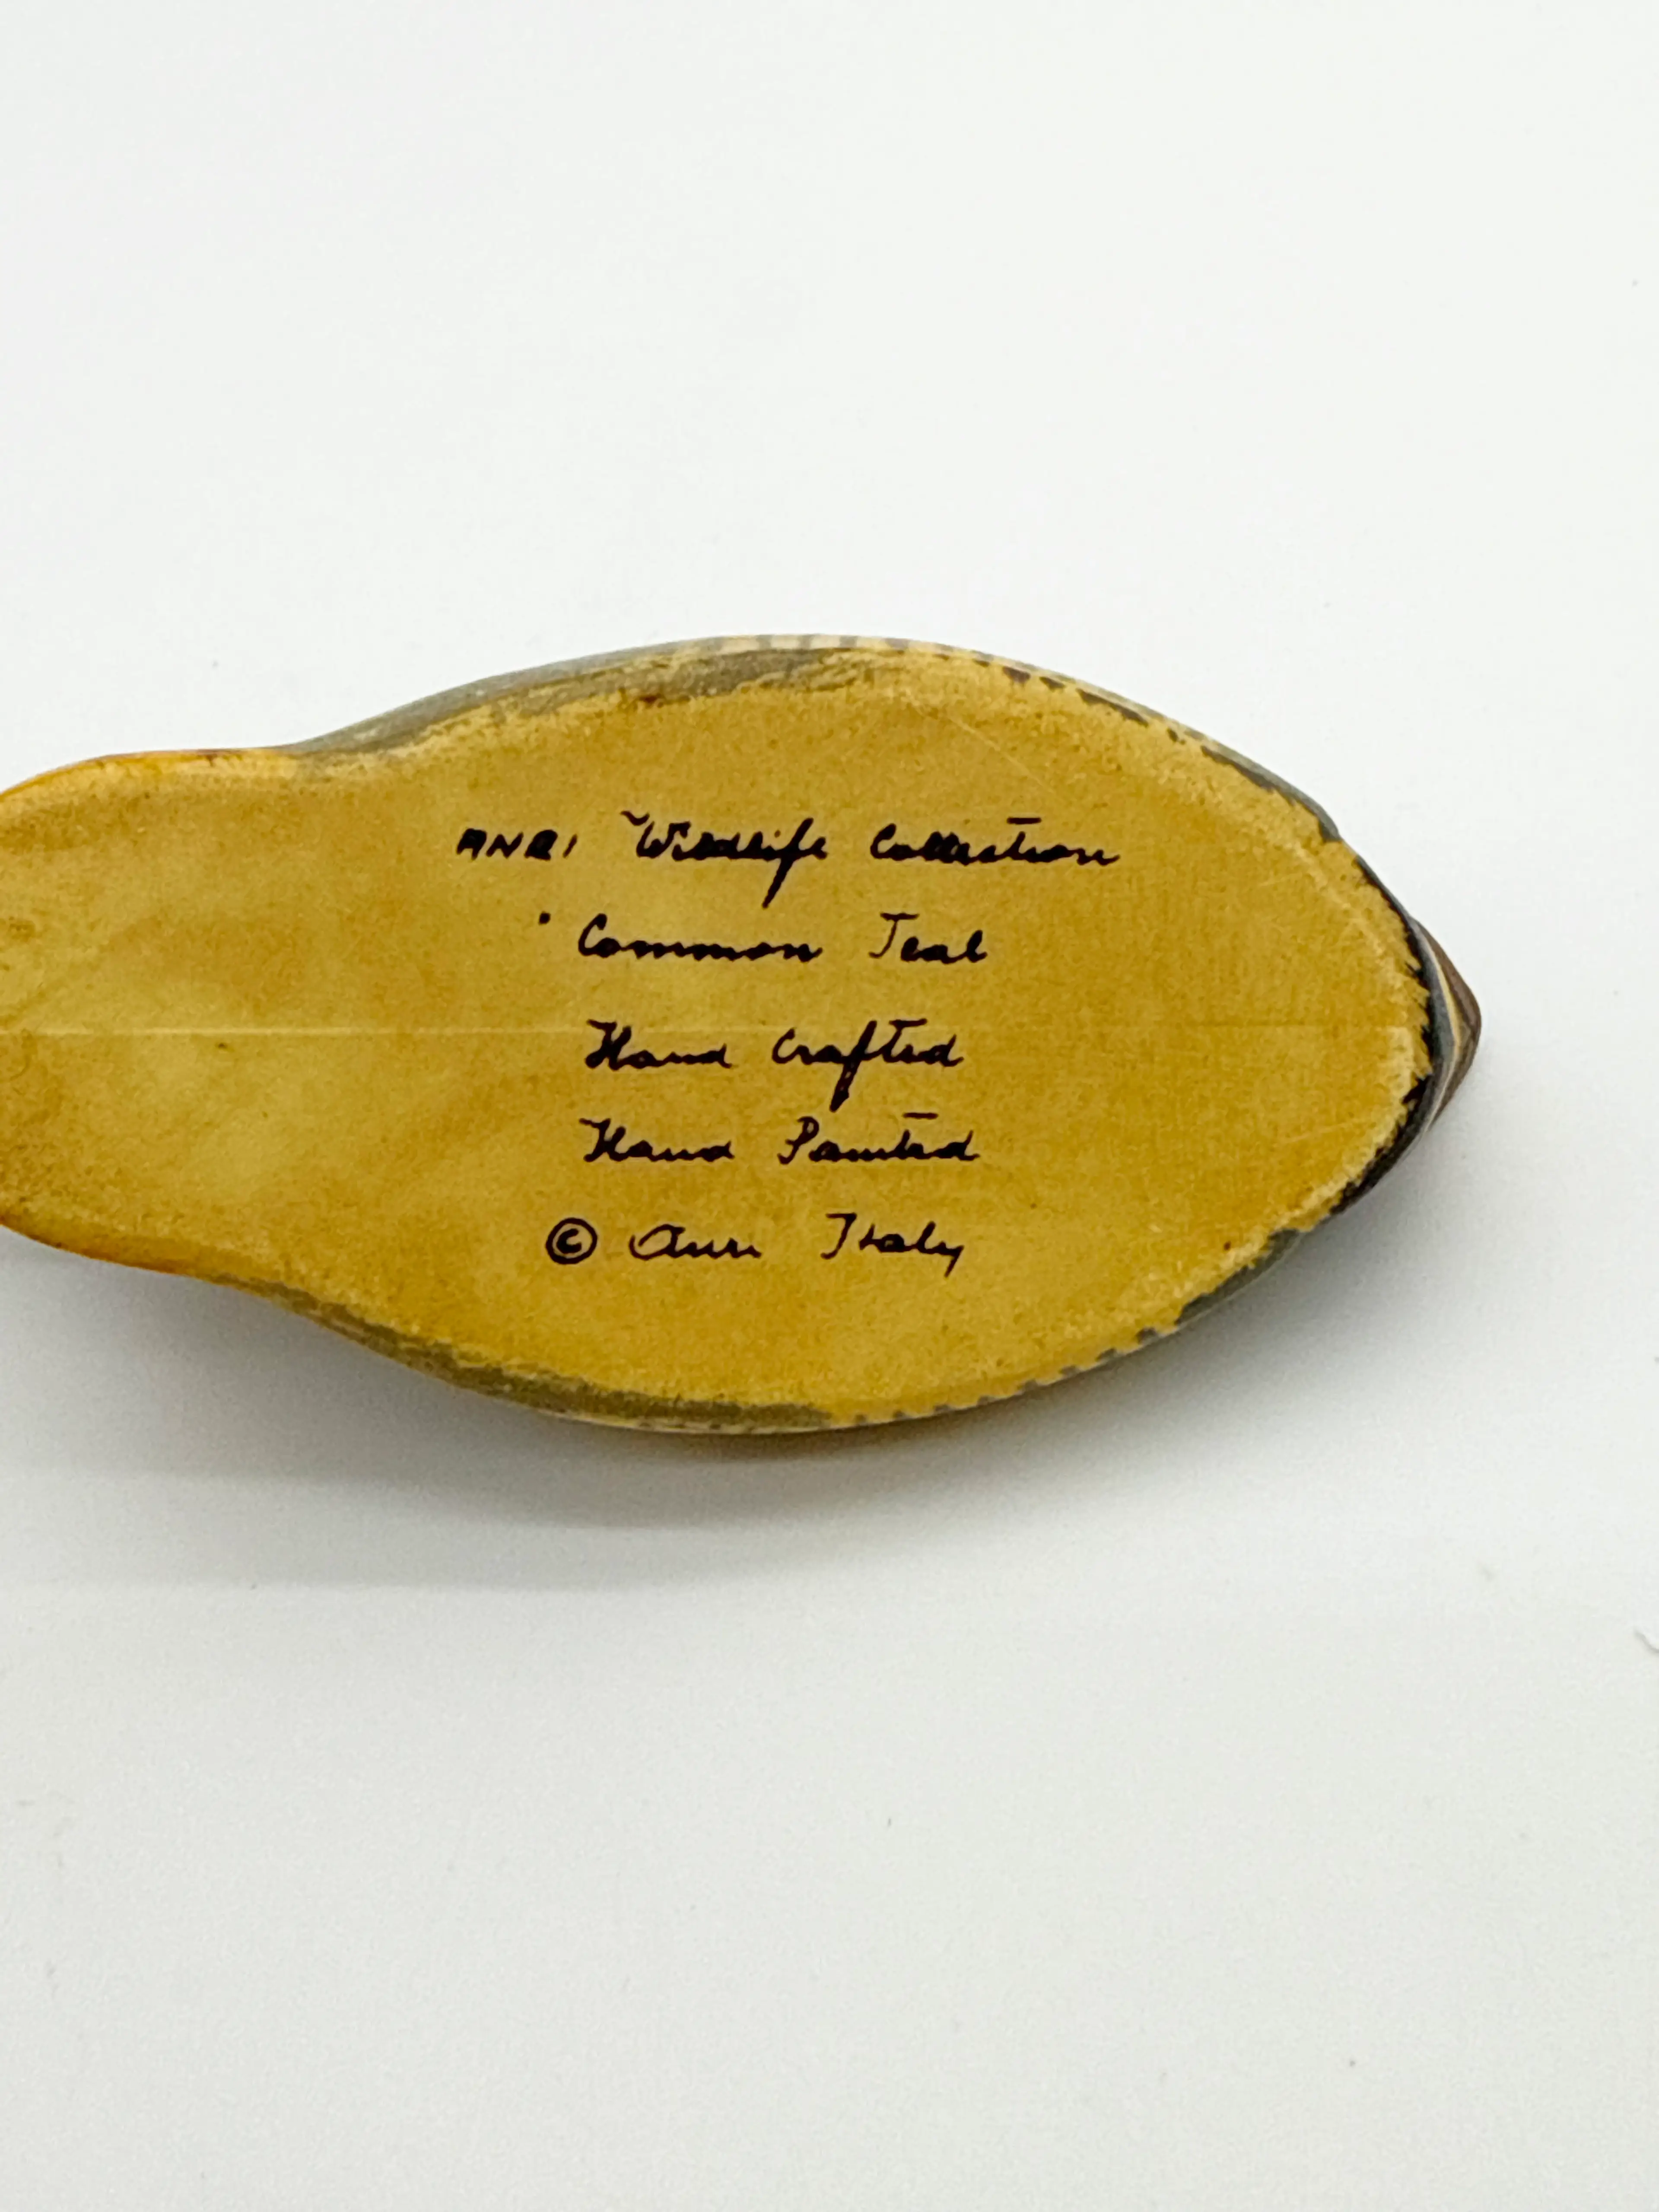 ANRI Wildlife Collection
Common Teal
Hand Crafted
Hand Painted
© Anri Italy